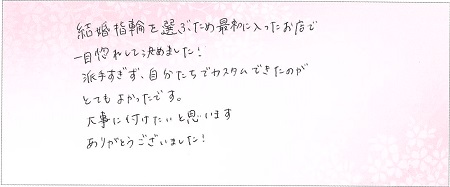 結婚指輪を選ぶため最初に入ったお店で
一目惚れして決めました！
派手すぎず、自分たちでカスタムできたのが
とてもよかったです。
大事に付けたいと思います
ありがとうございました！